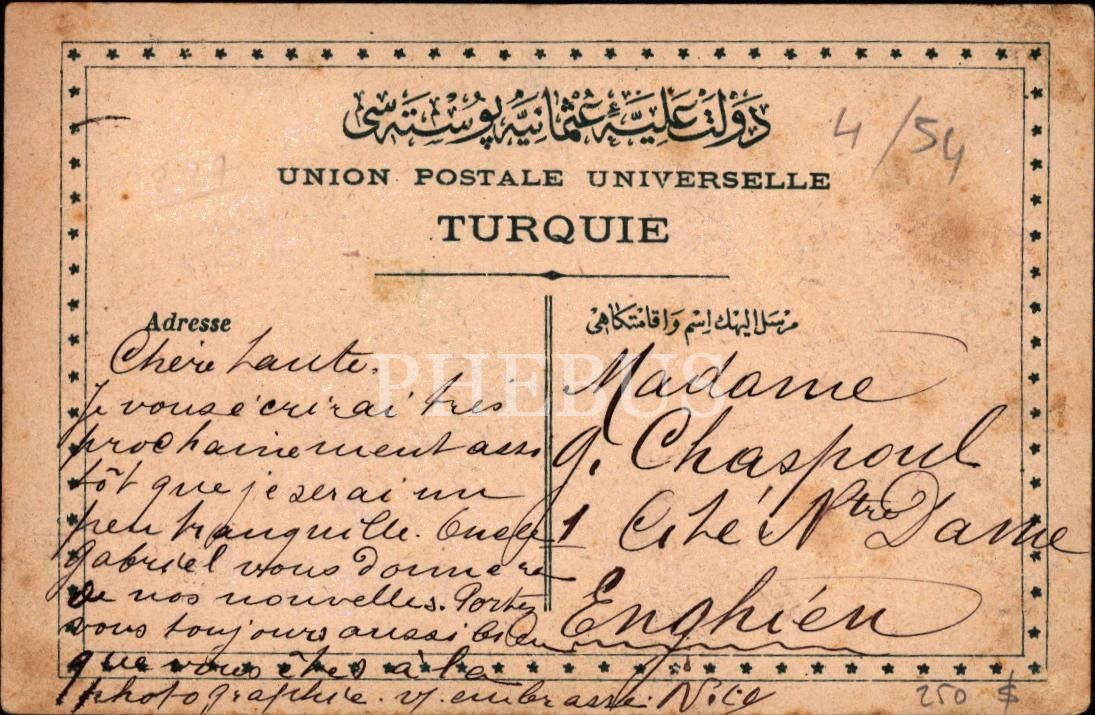 دولت عليۀ عثمانيه پوسته سى
4/54
UNION POSTALE UNIVERSELLE
TURQUIE
Adresse
Chère tante.
Je vous écrirai très
prochainement assi
tôt que je serai un
peu tranquille. Oncle
Gabriel vous donnera
de nos nouvelles. Portez
vous toujours aussi bien
que vous êtes à la
photographie. v/ embrasse
مرسل اليهك اسم و اقامتكاهى
Madame
g. Chaspoul
1 Cité Ntre Dame
Enghien
250 $
PHEBUS